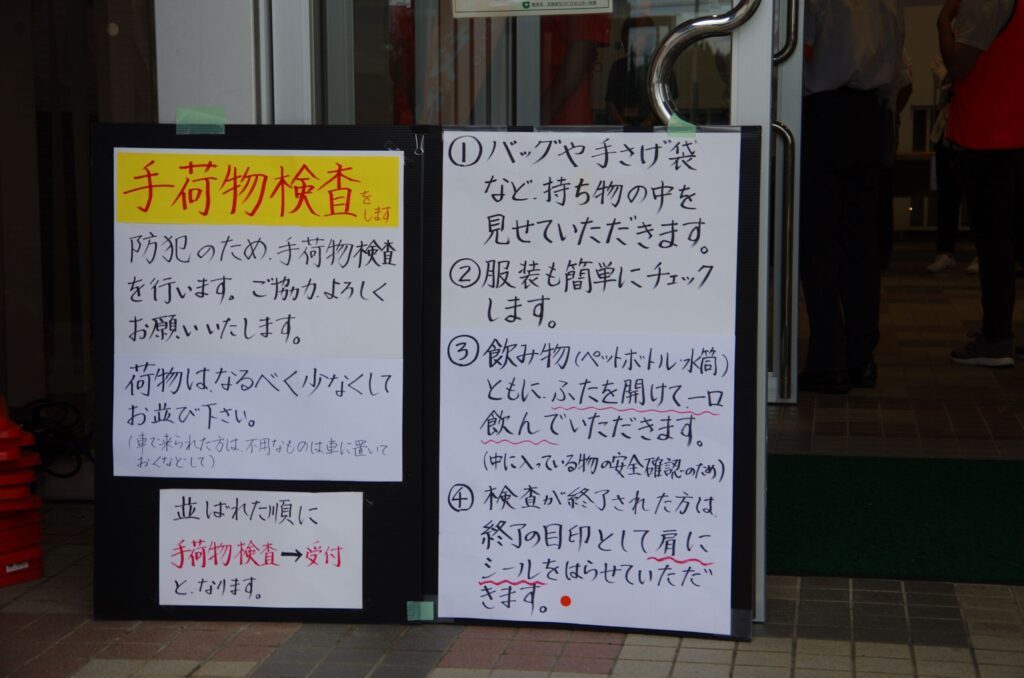 手荷物検査をします
防犯のため、手荷物検査
を行います。ご協力、よろしく
お願いいたします。
荷物は、なるべく少なくして
お並び下さい。
(車で来られた方は、不用なものは車に置いて
おくなどして)
並ばれた順に
手荷物検査→受付
と、なります。
①バッグや手さげ袋
など、持ち物の中を
見せていただきます。
②服装も簡単にチェック
します。
③飲み物(ペットボトル・水筒)
ともに、ふたを開けて、一口
飲んでいただきます。
(中に入っている物の安全確認のため)
④検査が終了された方は、
終了の目印として肩に
シールをはらせていただ
きます。